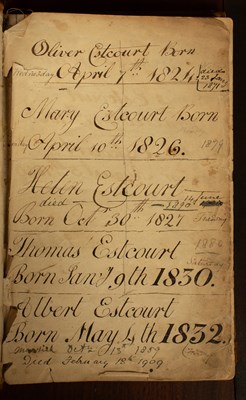 Oliver Estcourt Born
Wednesday April 7th 1824. died
1891
Mary Estcourt Born
April 10th 1826. 1879
Helen Estcourt
died June
Born Oct 30th 1827
Thomas Estcourt 1886
Born Jany 9th 1830.
Albert Estcourt
Born May 4th 1832.
Oct 1859
Died February 18th 1909